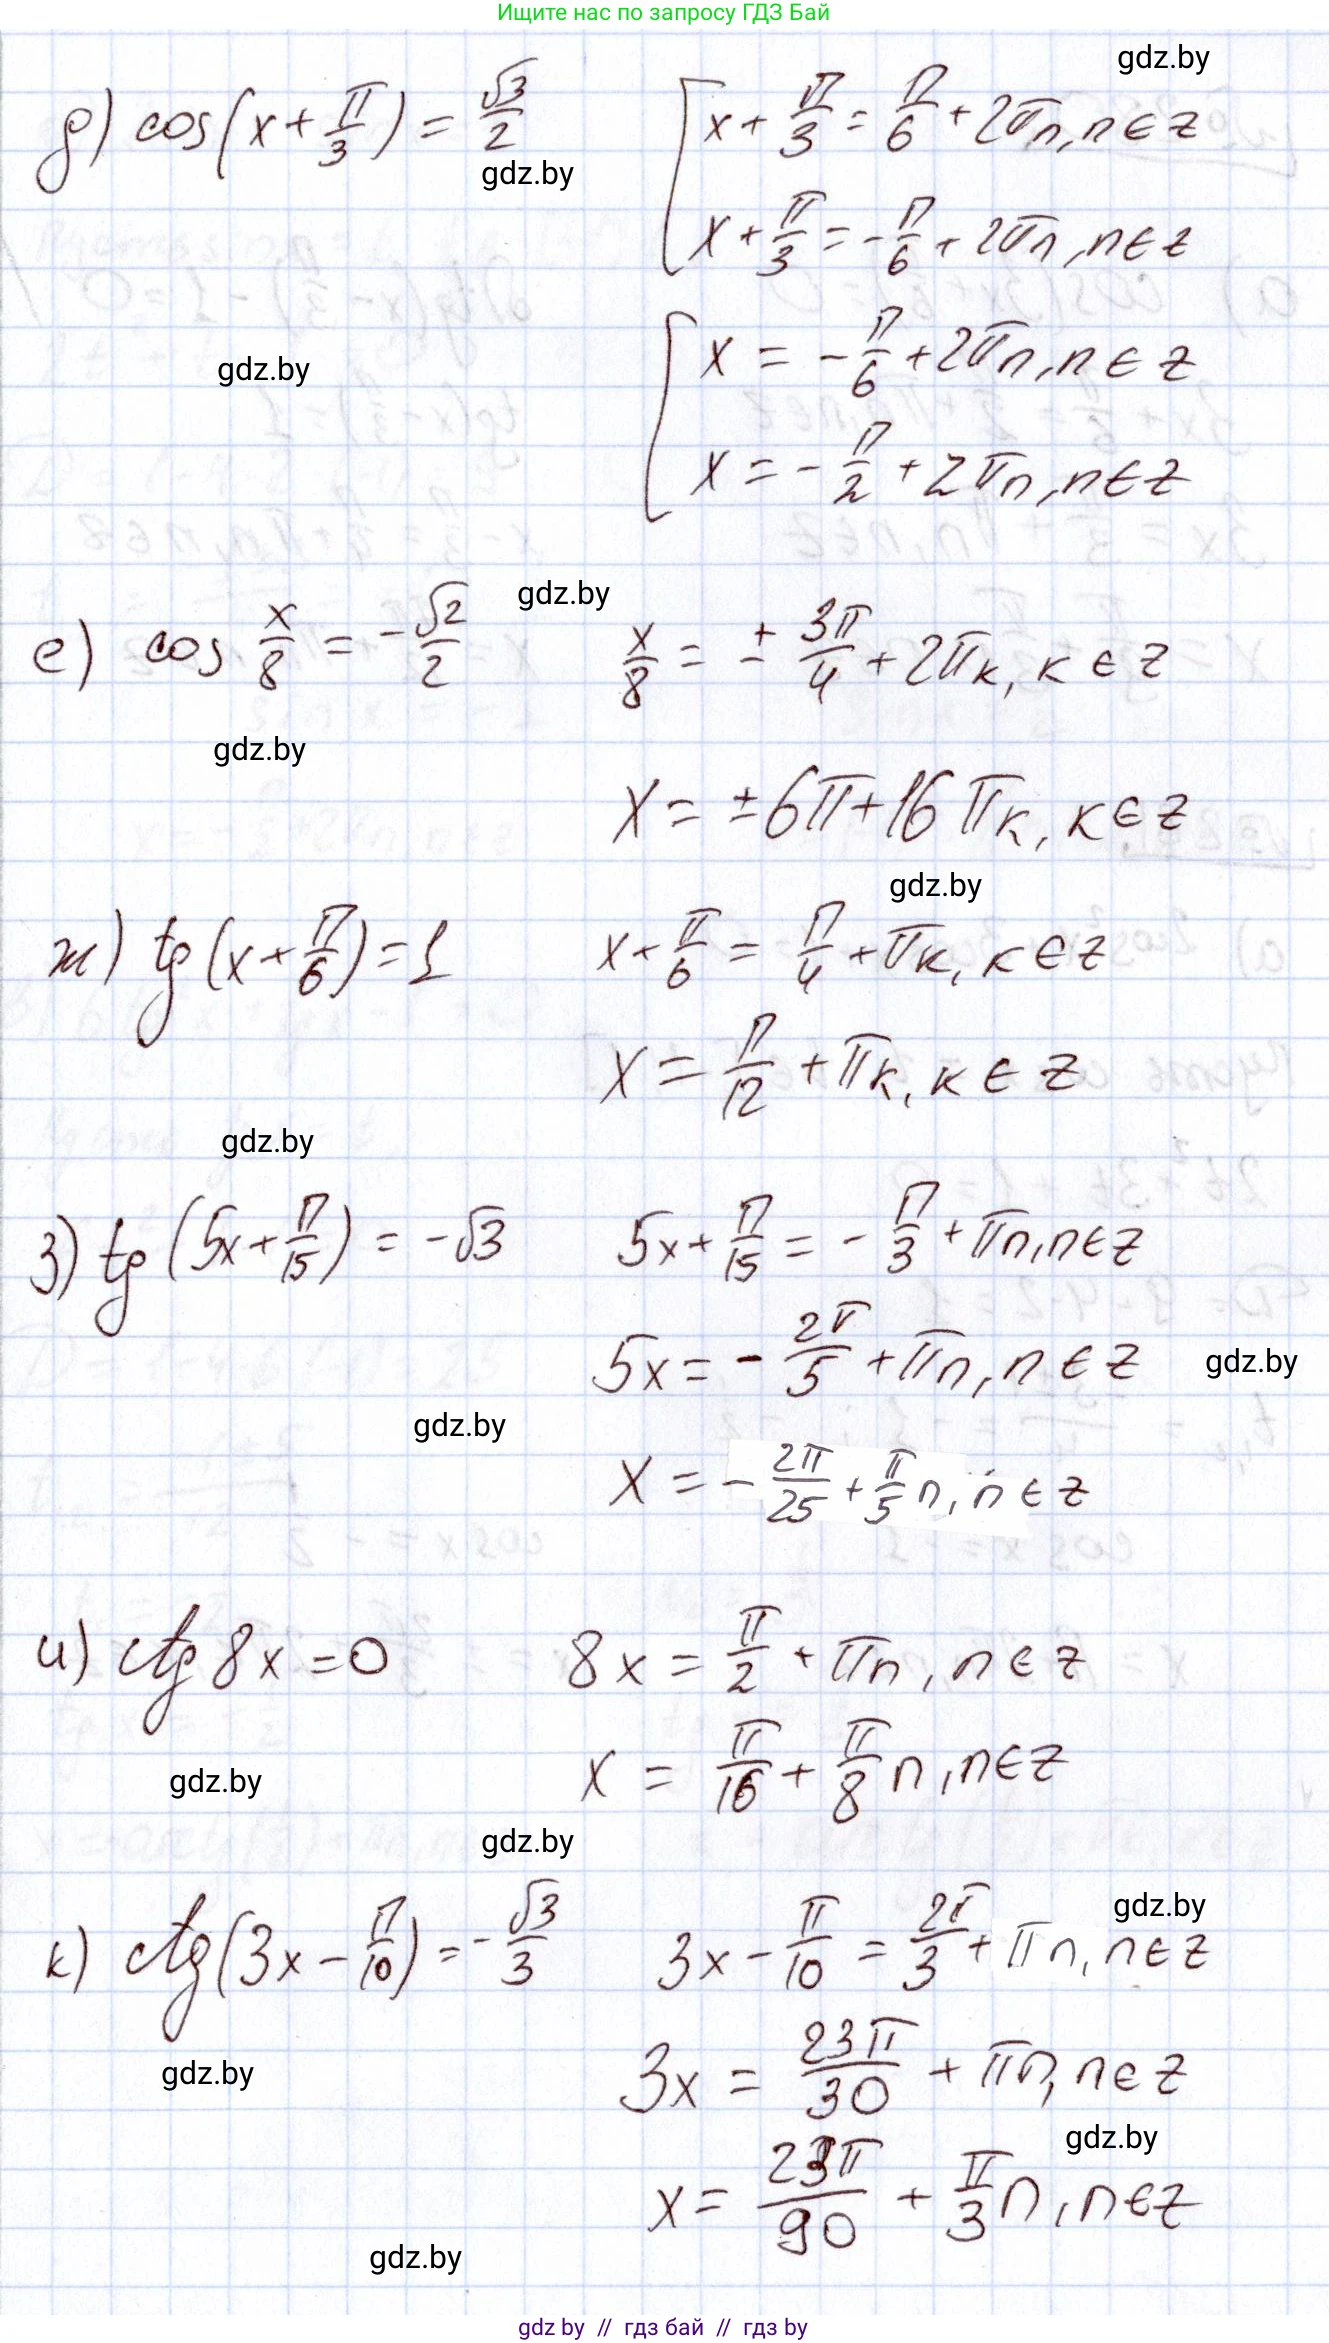 Ищите нас по запросу ГДЗ Бай
gdz.by
д) cos(x + π/3) = √3/2 [ x + π/3 = π/6 + 2πn, n ∈ z
gdz.by
x + π/3 = -π/6 + 2πn, n ∈ z
gdz.by
[ x = -π/6 + 2πn, n ∈ z
x = -π/2 + 2πn, n ∈ z
gdz.by
е) cos x/8 = -√2/2 x/8 = ± 3π/4 + 2πк, к ∈ z
gdz.by
x = ±6π + 16πк, к ∈ z
gdz.by
ж) tg(x + π/6) = 1 x + π/6 = π/4 + πк, к ∈ z
x = π/12 + πк, к ∈ z
gdz.by
з) tg(5x + π/15) = -√3 5x + π/15 = -π/3 + πn, n ∈ z
5x = -2π/5 + πn, n ∈ z
gdz.by
gdz.by
x = -2π/25 + π/5 n, n ∈ z
и) ctg 8x = 0 8x = π/2 + πn, n ∈ z
gdz.by
x = π/16 + π/8 n, n ∈ z
gdz.by
gdz.by
к) ctg(3x - π/10) = -√3/3 3x - π/10 = 2π/3 + πn, n ∈ z
gdz.by
3x = 23π/30 + πn, n ∈ z
gdz.by
x = 23π/90 + π/3 n, n ∈ z
gdz.by
gdz by // гдз бай // gdz by